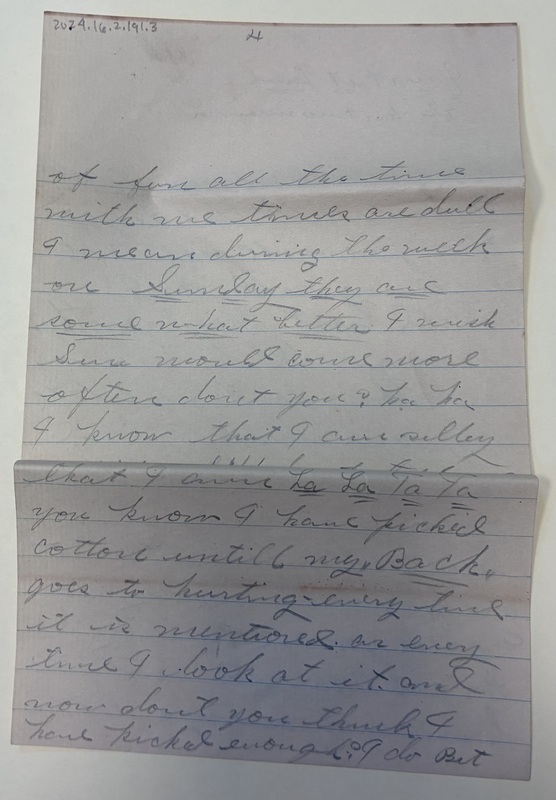 2024.16.2.191.3
4
of fun all the time
with me times are dull
I mean during the week
on Sunday they are
some what better. I wish
Sun would come more
often dont you? ha ha
I know that I am silley
that I am La La Ta Ta
you know I have picked
cotton untill my "Back"
goes to hurting every time
it is mentioned. or every
time I look at it. and
now dont you think I
have picked enough? I do But